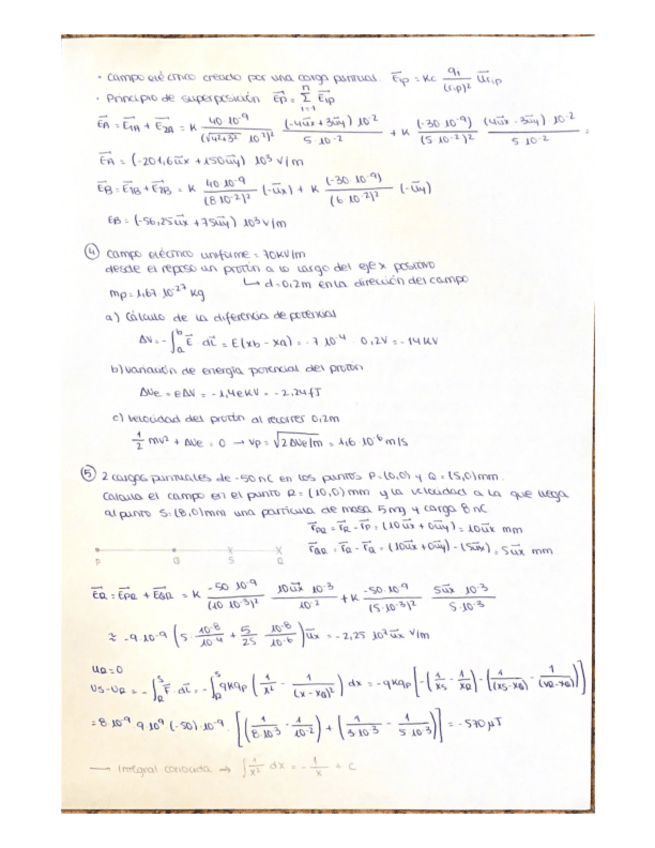 · Campo eléctrico creado por una carga puntual. E⃗ip = Kc qi/(rip)² u⃗rip
· Principio de superposición E⃗p = Σ(i=1→n) E⃗ip
E⃗A = E⃗1A + E⃗2A = K 40·10⁻⁹/(√4²+3² 10⁻²)² (-4u⃗x + 3u⃗y) 10⁻²/5·10⁻² + K (-30·10⁻⁹)/(5·10⁻²)² (4u⃗x - 3u⃗y) 10⁻²/5·10⁻² =
E⃗A = (-201,6u⃗x + 150u⃗y) 10³ V/m
E⃗B = E⃗1B + E⃗2B = K 40·10⁻⁹/(8·10⁻²)² (-u⃗x) + K (-30·10⁻⁹)/(6·10⁻²)² (-u⃗y)
EB = (-56,25u⃗x + 75u⃗y) 10³ V/m
④ Campo eléctrico uniforme = 70KV/m
desde el reposo un protón a lo largo del eje x positivo
↳ d=0,2m en la dirección del campo
mp = 1,67·10⁻²⁷ Kg
a) Cálculo de la diferencia de potencial
ΔV = -∫ₐᵇ E⃗ dl⃗ = E(xb - xa) = -7·10⁻⁴ · 0,2V = -14KV
b) variación de energía potencial del protón
ΔUe = eΔV = -1,4eKV = -2,24fJ
c) velocidad del protón al recorrer 0,2m
1/2 mv² + ΔUe = 0 → vp = √2ΔUe/m = 1,6·10⁻⁶ m/s
⑤ 2 cargas puntuales de -50nC en los puntos P=(0,0) y Q=(5,0)mm.
Calcula el campo en el punto R=(10,0)mm y la velocidad a la que llega
al punto S=(8,0)mm una partícula de masa 5mg y carga 8nC
r⃗PR = r⃗R - r⃗P = (10u⃗x + 0u⃗y) = 10u⃗x mm
r⃗QR = r⃗R - r⃗Q = (10u⃗x + 0u⃗y) - (5u⃗x) = 5u⃗x mm
P Q S
E⃗R = E⃗PR + E⃗QR = K -50·10⁻⁹/(10·10⁻³)² 10u⃗x·10⁻³/10⁻² + K -50·10⁻⁹/(5·10⁻³)² 5u⃗x·10⁻³/5·10⁻³
≈ -9·10⁻⁹ (5·10⁻⁸/10⁻⁴ + 5/25 10⁻⁸/10⁻⁶) u⃗x = -2,25·10⁷ u⃗x V/m
UR = 0
US - UR = -∫ᴿˢ F⃗ dl⃗ = -∫ᴿˢ qKqp (1/x² - 1/(x-xQ)²) dx = -qKqp [-(1/xS - 1/xR) - (1/(xS-xQ) - 1/(xR-xQ))]
= 8·10⁻⁹ 9·10⁹ (-50)·10⁻⁹ · [(1/8·10³ - 1/10⁻²) + (1/3·10³ - 1/5·10³)] = -570μJ
— Integral conocida → ∫1/x² dx = -1/x + C